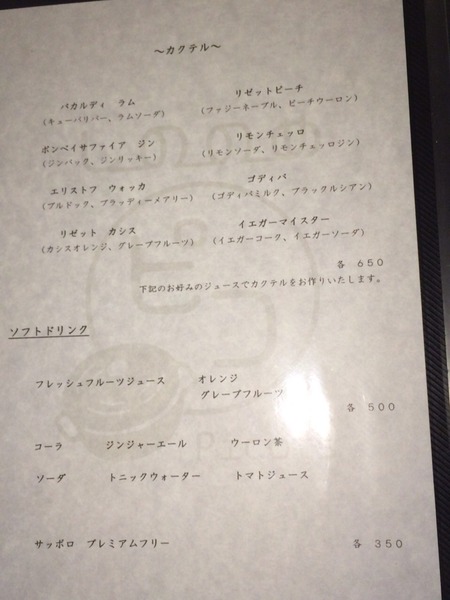 ～カクテル～
バカルディ　ラム
（キューバリバー、ラムソーダ）
リゼットピーチ
（ファジーネーブル、ピーチウーロン）
ボンベイサファイア　ジン
（ジンバック、ジンリッキー）
リモンチェッロ
（リモンソーダ、リモンチェッロジン）
エリストフ　ウォッカ
（ブルドック、ブラッディーメアリー）
ゴディバ
（ゴディバミルク、ブラックルシアン）
リゼット　カシス
（カシスオレンジ、グレープフルーツ）
イエガーマイスター
（イエガーコーク、イエガーソーダ）
各　６５０
下記のお好みのジュースでカクテルをお作りいたします。
ソフトドリンク
フレッシュフルーツジュース　オレンジ
グレープフルーツ
各　５００
コーラ　ジンジャーエール　ウーロン茶
ソーダ　トニックウォーター　トマトジュース
サッポロ　プレミアムフリー　各　３５０